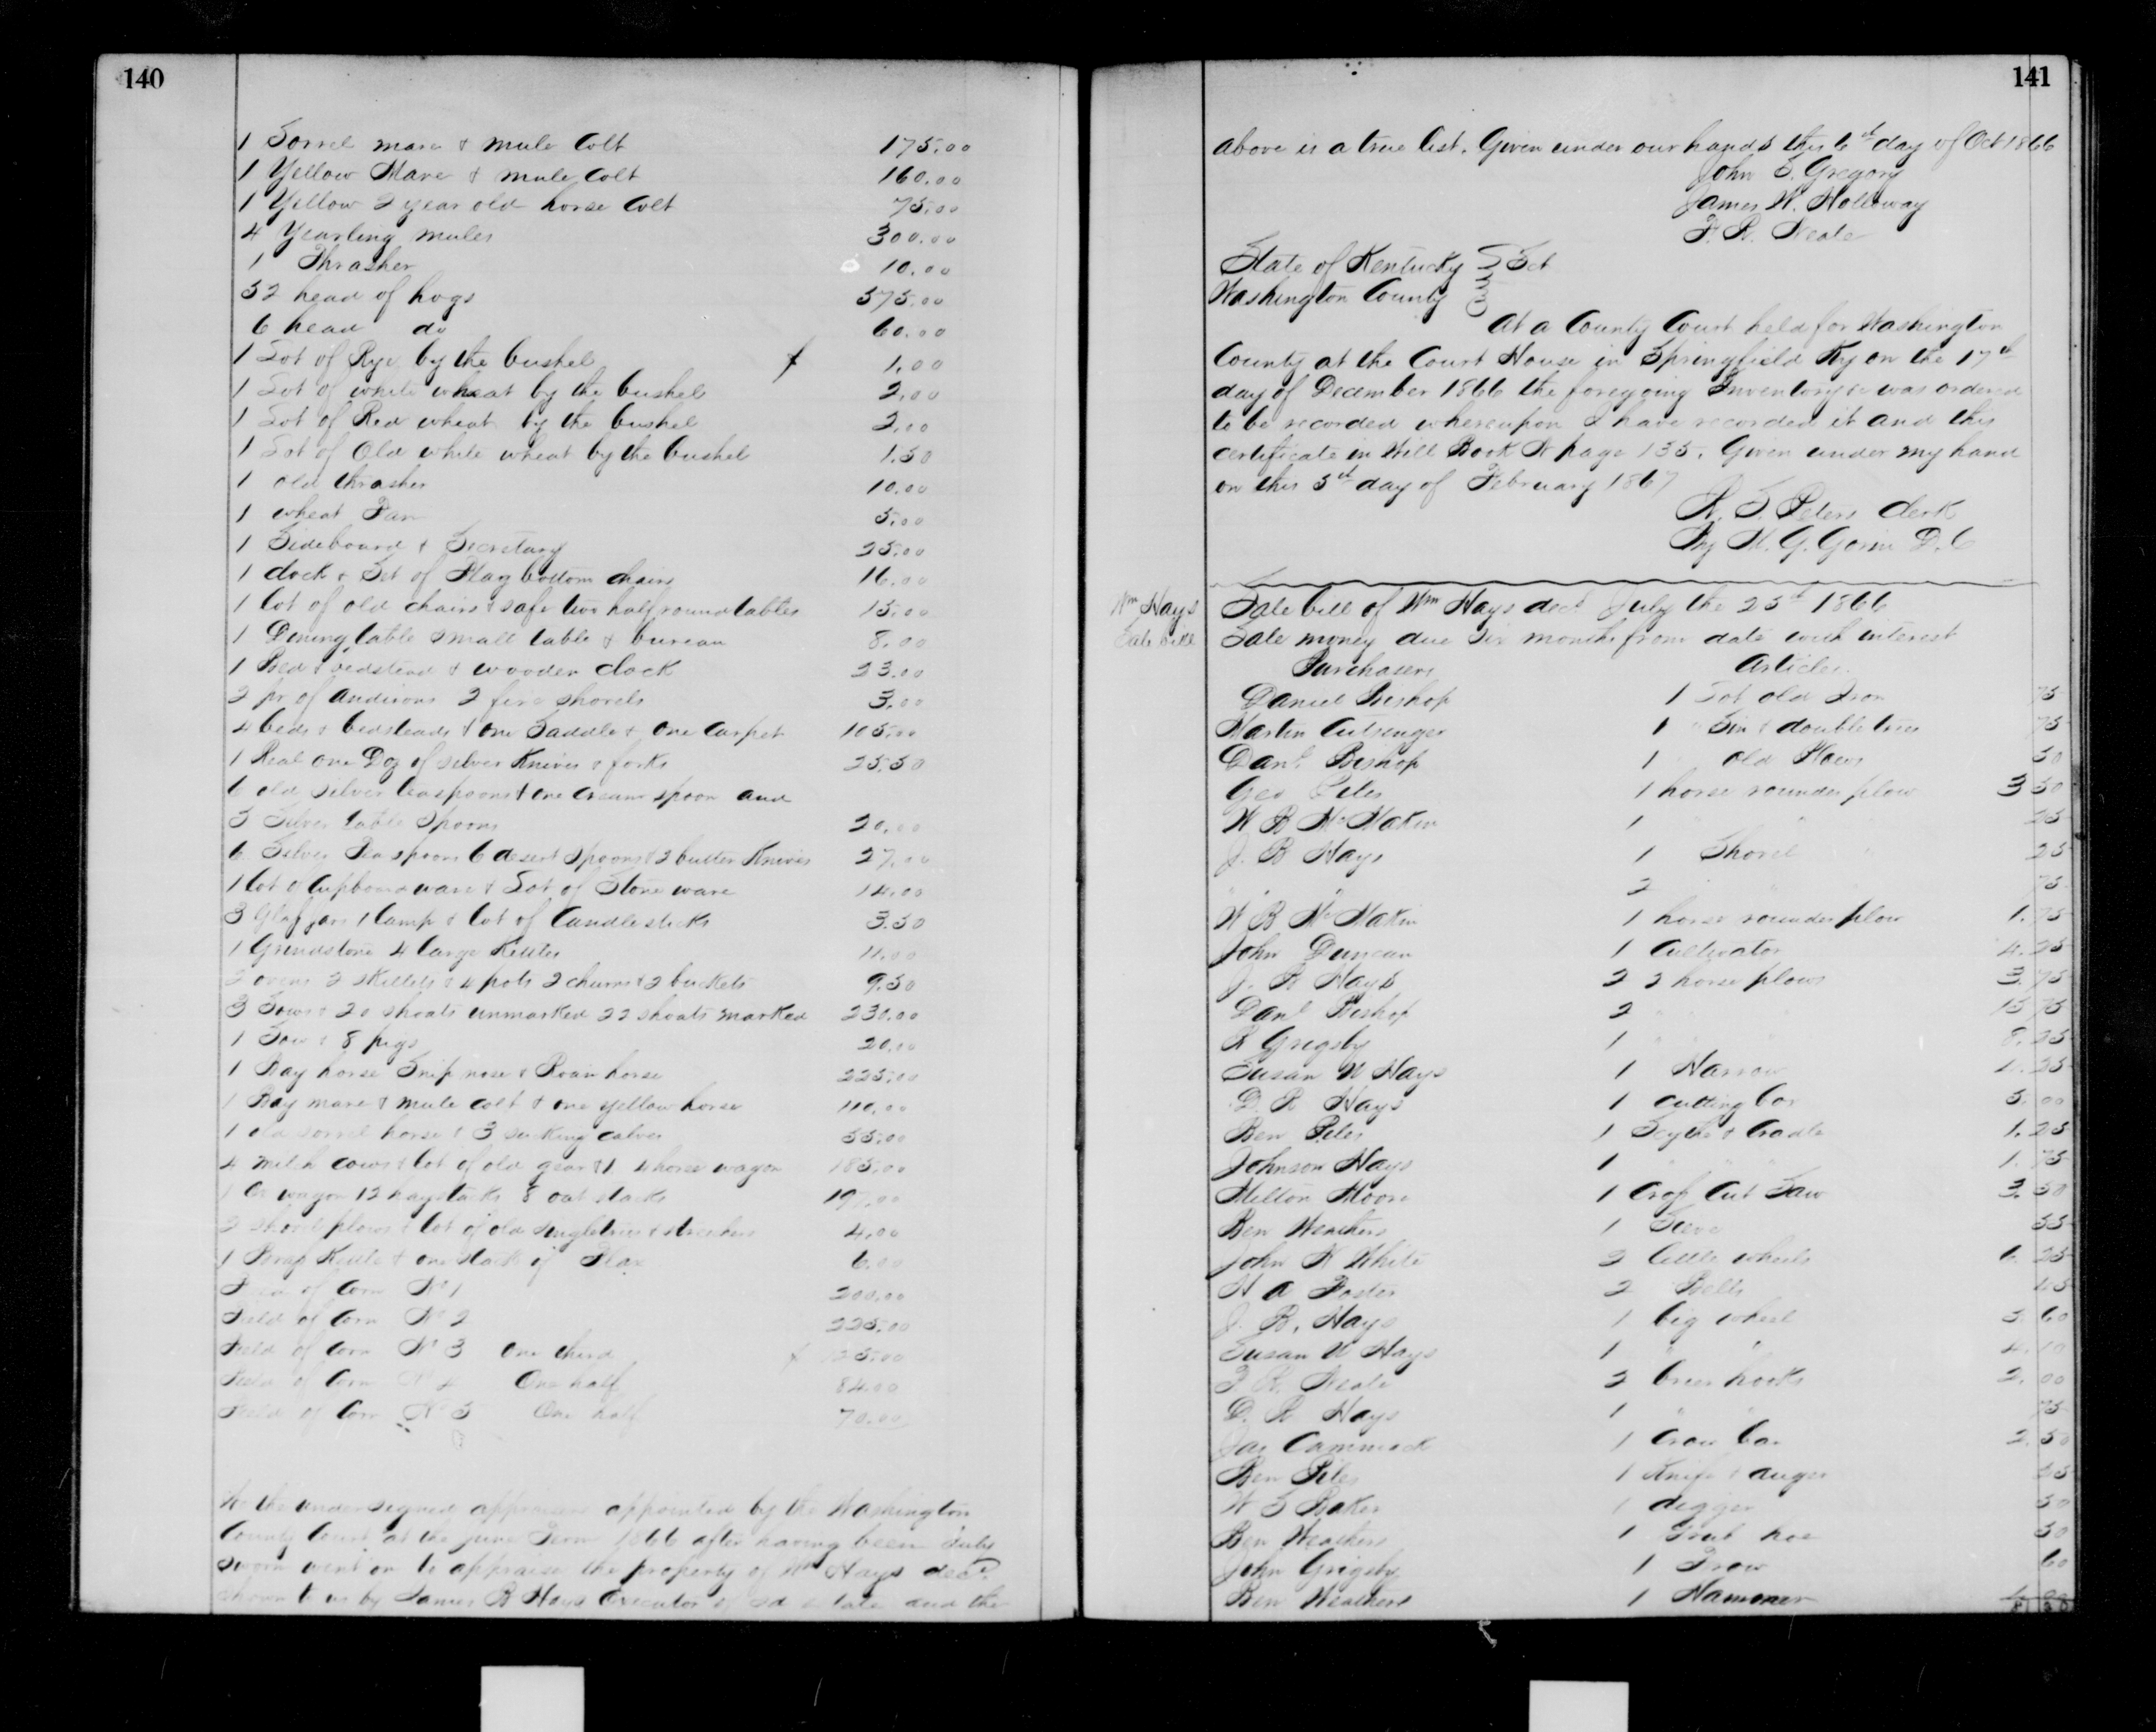 140
1 Sorrel mare & mule Colt 175.00
1 Yellow Mare & mule Colt 160.00
1 Yellow 2 year old horse Colt 75.00
4 Yearling mules 300.00
1 Thrasher 10.00
52 head of hogs 575.00
6 head do 60.00
1 Lot of Rye by the bushel 1.00
1 Lot of white wheat by the bushel 2.00
1 Lot of Red wheat by the bushel 2.00
1 Lot of Old white wheat by the bushel 1.50
1 old thrasher 10.00
1 wheat Fan 5.00
1 Sideboard & Secretary 25.00
1 clock & Set of Flag bottom chairs 16.00
1 lot of old chairs & safe two half round tables 15.00
1 Dining table small table & bureau 8.00
1 Bed & bedstead & wooden clock 23.00
2 pr of andirons 2 fire shovels 3.00
4 beds & bedsteads & one Saddle & one Carpet 105.00
1 Real one Doz of silver Knives & forks 25.50
6 old silver teaspoons & one cream spoon and
5 Silver table Spoons 20.00
6 Silver Tea spoons 6 desert Spoons & 2 butter Knives 27.00
1 lot of Cupboard ware & Lot of Stone ware 14.00
3 Glass jars 1 lamp & lot of Candlesticks 3.50
1 Grindstone 4 large Kettles 11.00
2 ovens 2 skillets & 4 pots 2 churns & 2 buckets 9.50
3 Sows & 20 shoats unmarked 22 shoats marked 230.00
1 Sow & 8 pigs 20.00
1 Bay horse Snip nose & Roan horse 225.00
1 Bay mare & mule colt & one yellow horse 110.00
1 old sorrel horse & 3 sucking calves 55.00
4 milch cows & lot of old gear & 1 4 horse wagon 185.00
1 Ox wagon 12 haystacks 8 oat stacks 197.00
2 shovel plows & lot of old singletrees & stretchers 4.00
1 Brass Kettle & one stack of Flax 6.00
Field of Corn No 1 200.00
Field of Corn No 2 225.00
Field of Corn No 3 One third 125.00
Field of Corn No 4 One half 84.00
Field of Corn No 5 One half 70.00
We the undersigned appraisers appointed by the Washington
County Court at the June Term 1866 after having been duly
sworn went on to appraise the property of Wm Hays decd
shown to us by James B Hays Executor of sd estate and the
141
above is a true list. Given under our hands this 6th day of Oct 1866
John S. Gregory
James W. Holloway
F. R. Neale
State of Kentucky Sct
Washington County
At a County Court held for Washington
County at the Court House in Springfield Ky on the 17th
day of December 1866 the foregoing Inventory &c was ordered
to be recorded whereupon I have recorded it and this
certificate in Will Book N page 135. Given under my hand
on this 5th day of February 1867
Clerk
By W. G. D.C
Wm Hays
Sale bill
Sale bill of Wm Hays decd July the 25th 1866
Sale money due six months from date with interest
Purchasers Articles
Daniel Bishop 1 Lot old Iron 75
Martin Cutsenger 1 " Sin & double trees 75
Danl Bishop 1 old Plows 50
Geo Piles 1 horse rounder plow 3 50
W B McMakin 1 " " 25
J. B Hays 1 Shovel " 25
" " 2 " 75
W B McMakin 1 horse rounder plow 1.75
John Duncan 1 Cultivator 4.25
J. B Hays 2 2 horse plows 3.75
Danl Bishop 2 " 15 75
R Grigsby 1 " 8.25
Susan W Hays 1 Harrow 1.25
D. R Hays 1 cutting box 5.00
Ben Piles 1 Scythe & Cradle 1.25
Johnson Hays 1 " " 1.75
Milton Moore 1 Cross Cut Saw 3.50
Ben Weathers 1 Sieve 55
John W White 2 little wheels 6.25
H A Foster 2 Bells 45
J. B. Hays 1 big wheel 5.60
Susan W Hays 1 " " 4.10
F R. Neale 2 brier hooks 2.00
D. R Hays 1 " " 75
Jas Cammack 1 Crow bar 2.50
Ben Piles 1 Knife & auger
W S Baker 1 digger 50
Ben Weathers 1 Grub hoe 50
John Grigsby 1 Frow 60
Ben Weathers 1 Hammer